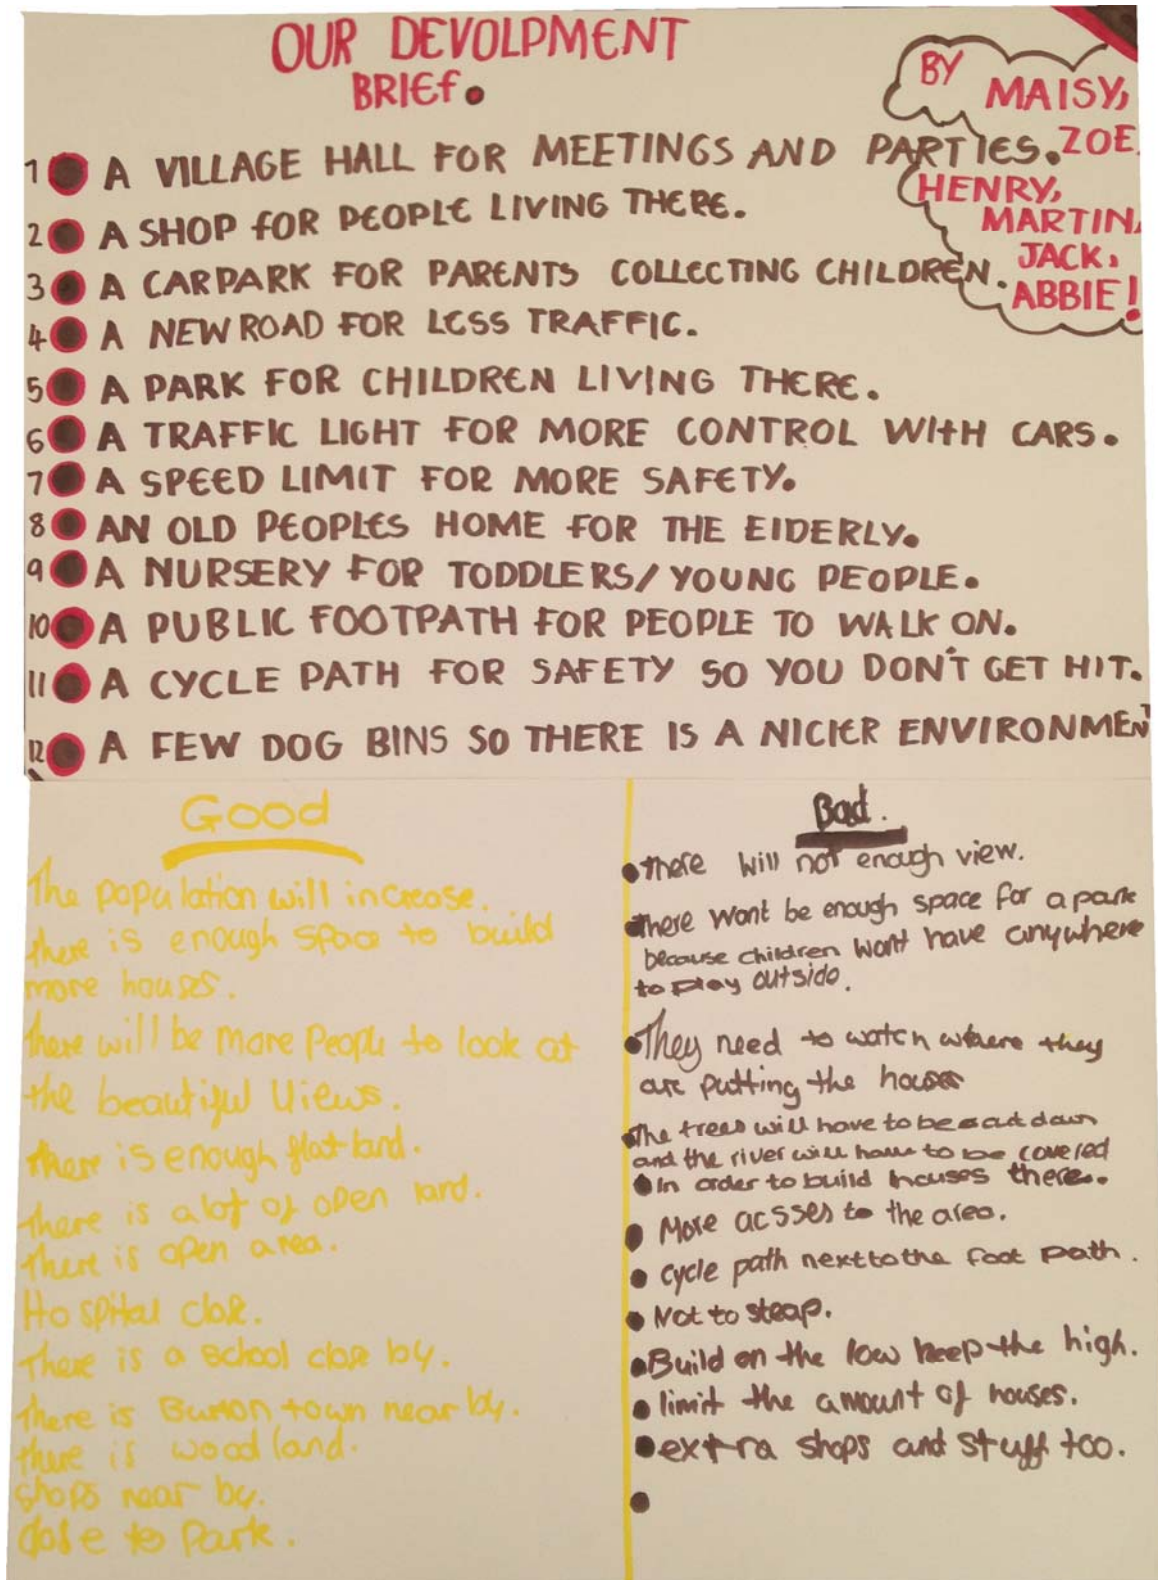 OUR DEVOLPMENT
BRIEF.
BY
MAISY,
ZOE,
HENRY,
MARTIN,
JACK,
ABBIE!
1 A VILLAGE HALL FOR MEETINGS AND PARTIES.
2 A SHOP FOR PEOPLE LIVING THERE.
3 A CARPARK FOR PARENTS COLLECTING CHILDREN.
4 A NEW ROAD FOR LESS TRAFFIC.
5 A PARK FOR CHILDREN LIVING THERE.
6 A TRAFFIC LIGHT FOR MORE CONTROL WITH CARS.
7 A SPEED LIMIT FOR MORE SAFETY.
8 AN OLD PEOPLES HOME FOR THE ElDERLY.
9 A NURSERY FOR TODDLERS/YOUNG PEOPLE.
10 A PUBLIC FOOTPATH FOR PEOPLE TO WALK ON.
11 A CYCLE PATH FOR SAFETY SO YOU DON'T GET HIT.
12 A FEW DOG BINS SO THERE IS A NICIER ENVIRONMENT
Good
The population will increase.
there is enough space to build
more houses.
There will be more People to look at
the beautiful views.
there is enough flat land.
there is a lot of open land.
there is open area.
Hospital close.
There is a school close by.
there is Burton town near by.
there is wood land.
shops near by.
close to Park.
Bad.
• there will not enough view.
• there wont be enough space for a park
because children wont have anywhere
to play outside.
• They need to watch where they
are putting the houses
• The trees will have to be cut down
and the river will have to be covered
• In order to build houses there.
• More acsses to the area.
• cycle path next to the foot path.
• Not to steap.
• Build on the low keep the high.
• limit the amount of houses.
• extra shops and stuff too.
•